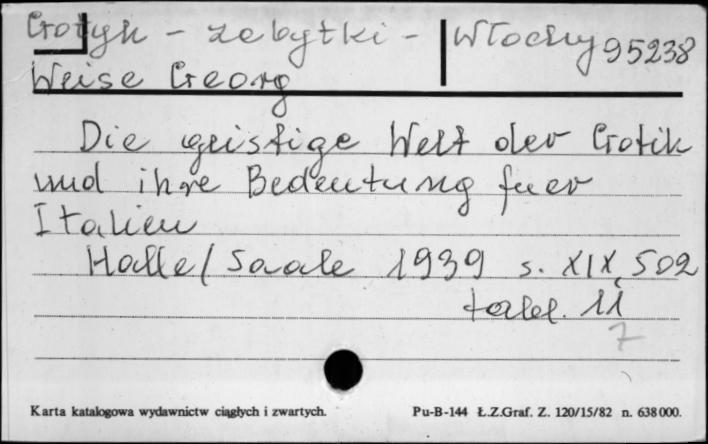 Gotyk - zabytki - Włochy 95238
Weise Georg
Die geistige Welt der Gotik
und ihre Bedeutung fuer
Italien
Halle/Saale 1939 s. XIX, 502
tabl. 11
7
Karta katalogowa wydawnictw ciągłych i zwartych. Pu-B-144 Ł.Z.Graf. Z. 120/15/82 n. 638 000.